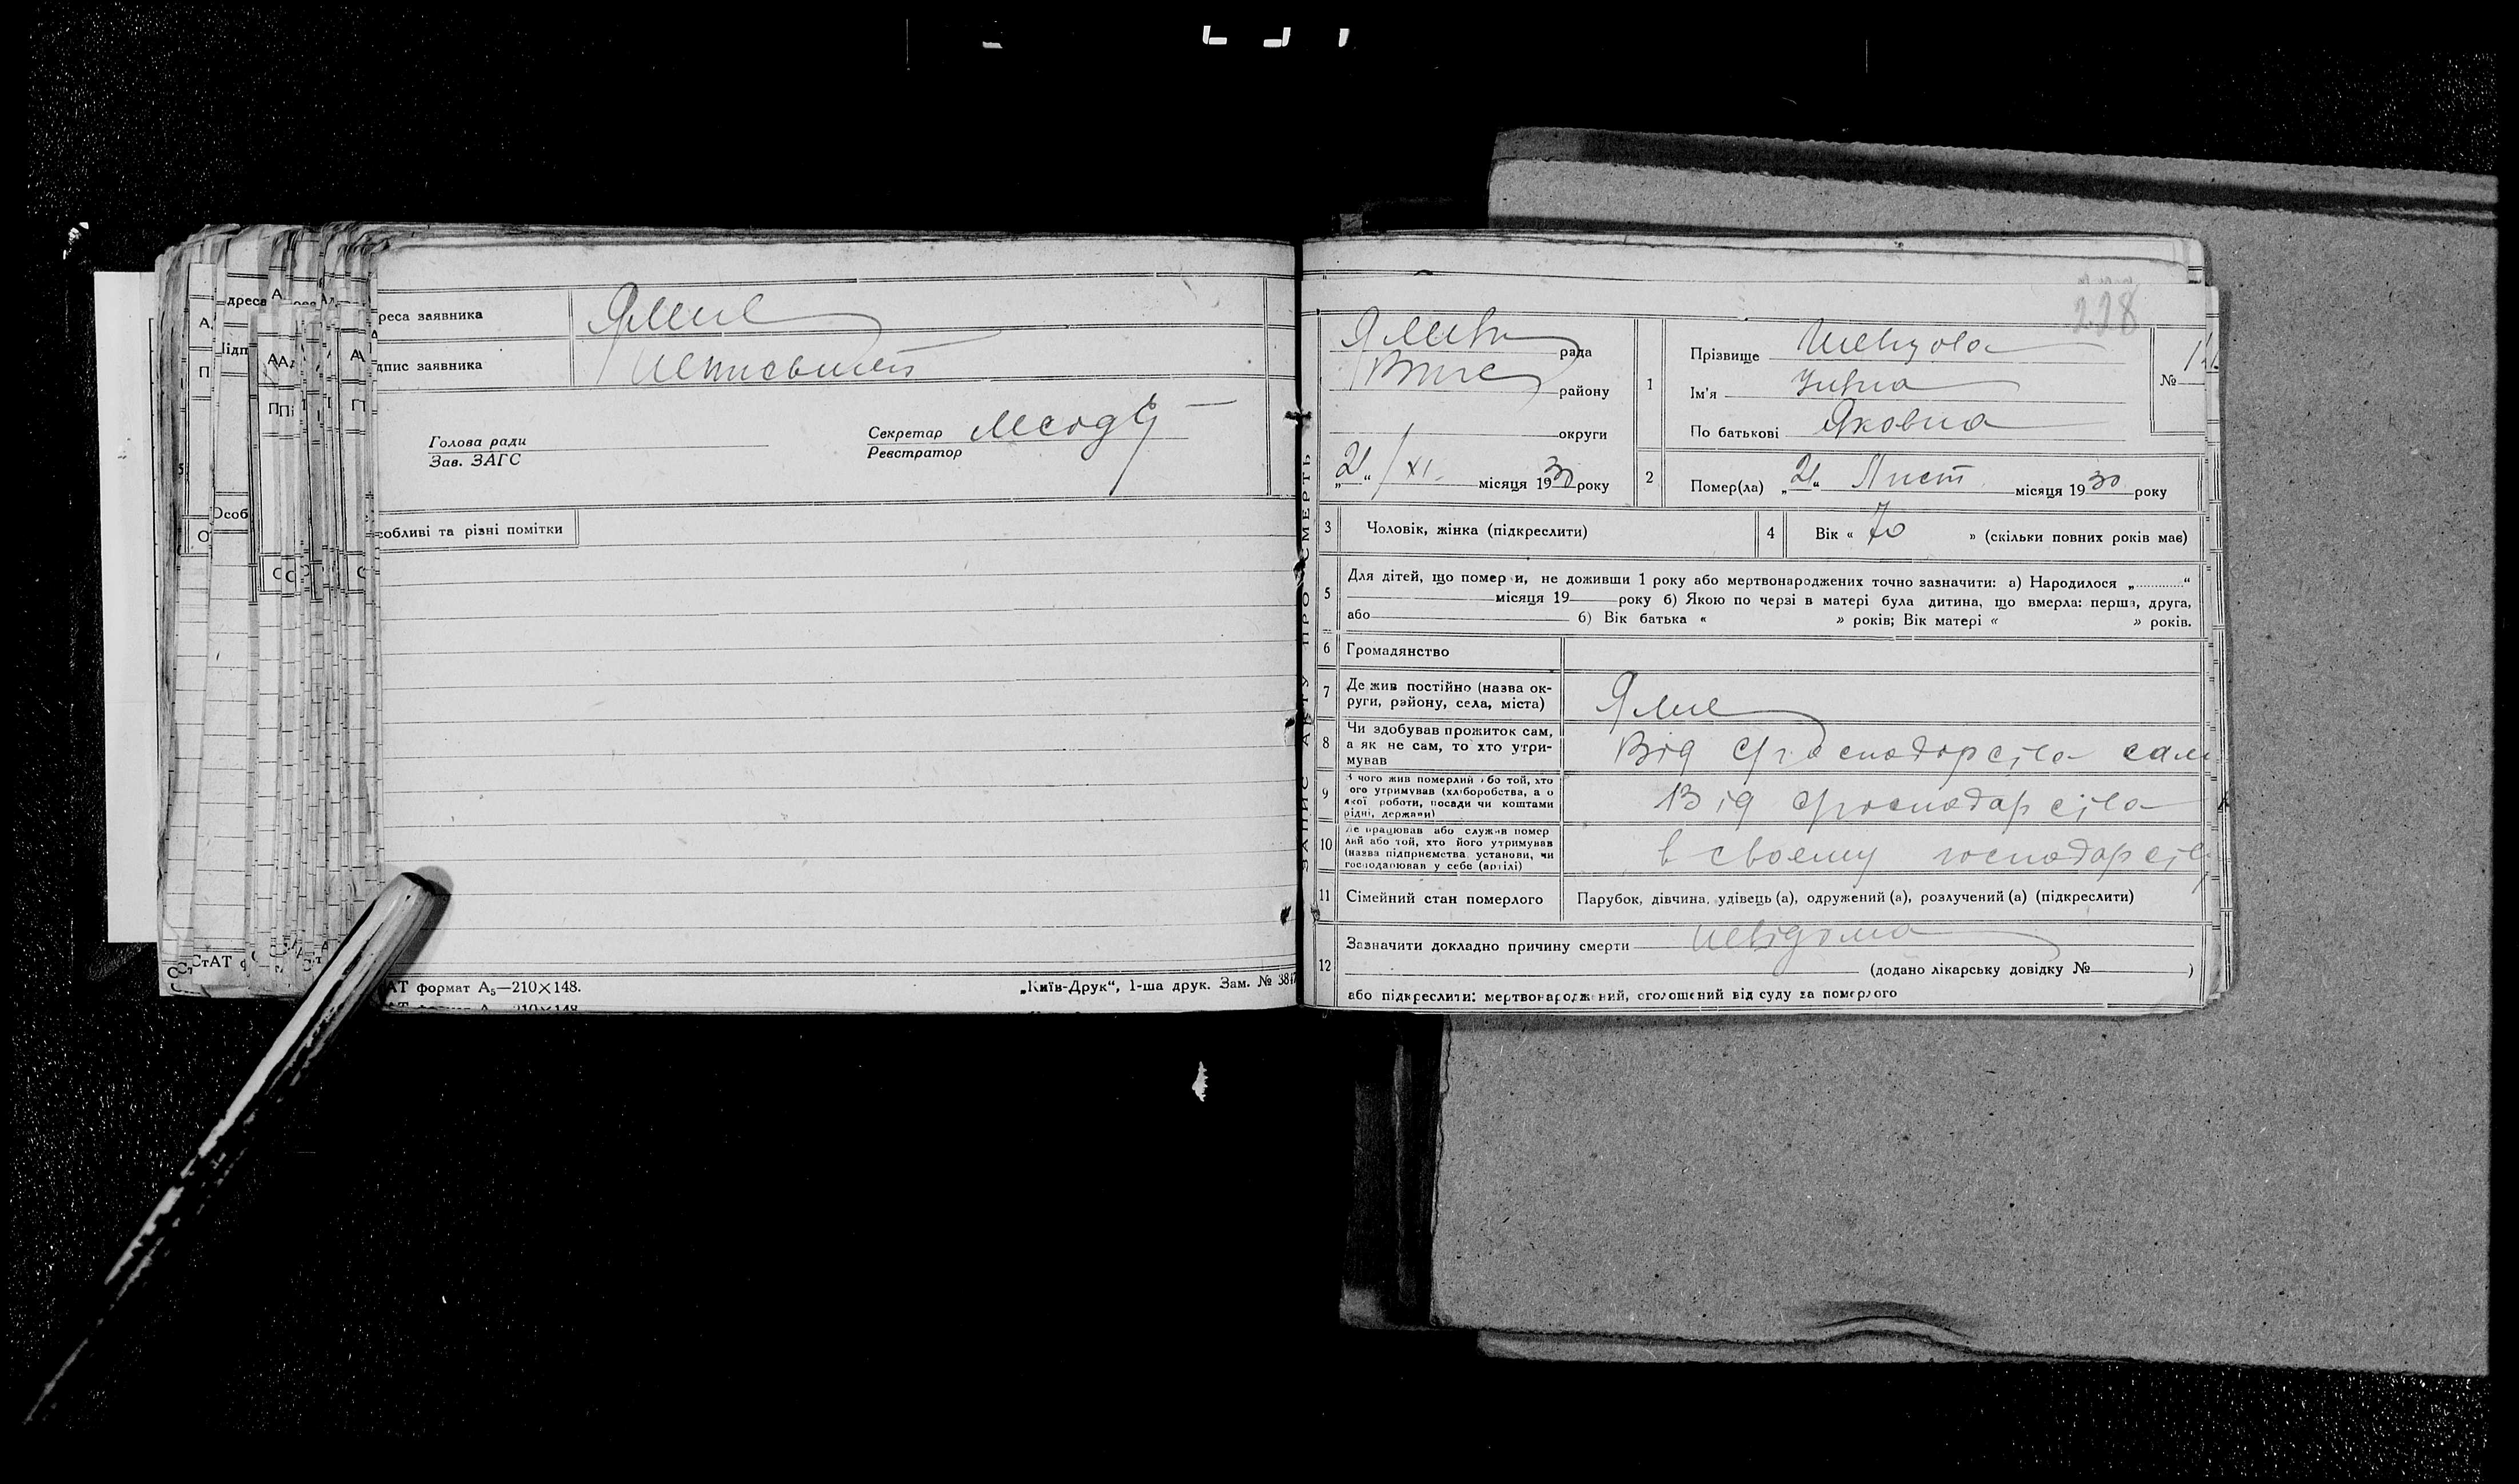 реса заявника Ямне
дпис заявника Неписьмен
Голова ради
Зав. ЗАГС
Секретар
Реєстратор
собливі та різні помітки
АТ формат А₅—210×148.
„Київ-Друк“, 1-ша друк. Зам. № 38
228
ЗАПИС АКТУ ПРО СМЕРТЬ
рада
району
округи
„21“ / XI. місяця 1930 року
1
Прізвище Шевцова
Ім'я
По батькові Яковна
№
2
Помер(ла) „21“ Лист. місяця 1930 року
3 Чоловік, жінка (підкреслити)
4 Вік « 70 » (скільки повних років має)
5 Для дітей, що померли, не доживши 1 року або мертвонароджених точно зазначити: а) Народилося „............“
місяця 19 року б) Якою по черзі в матері була дитина, що вмерла: перша, друга,
або б) Вік батька « » років; Вік матері « » років.
6 Громадянство
7 Де жив постійно (назва ок-
руги, району, села, міста) Ямне
8 Чи здобував прожиток сам,
а як не сам, то хто утри-
мував Від господарства сам
9 З чого жив померлий або той, хто
ого утримував (хліборобства, а о
якої роботи, посади чи коштами
рідні, держави) Від господарства
10 Де працював або служив помер
лий або той, хто його утримував
(назва підприємства установи, чи
господарював у себе (артілі) в своєму господарстві
11 Сімейний стан померлого Парубок, дівчина, удівець (а), одружений (а), розлучений (а) (підкреслити)
12 Зазначити докладно причину смерти невідома
(додано лікарську довідку № )
або підкреслити: мертвонароджений, оголошений від суду за померлого